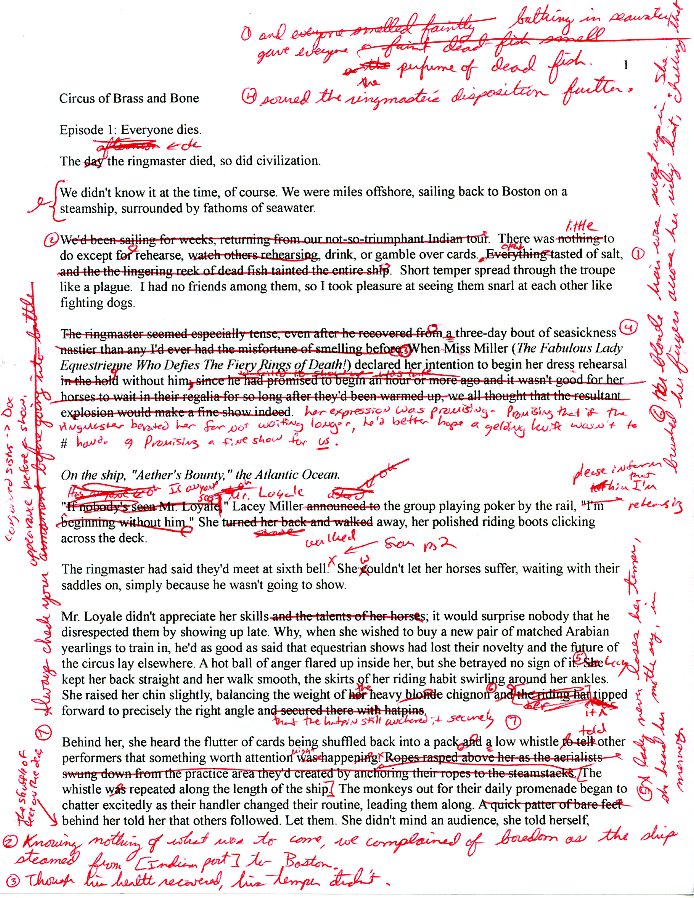 ① and everyone smelled faintly bathing in seawater
gave everyone a faint dead fish smell
the perfume of dead fish.
1
④ soured the ringmaster's disposition further.
Circus of Brass and Bone
Episode 1: Everyone dies.
afternoon
The day the ringmaster died, so did civilization.
We didn't know it at the time, of course. We were miles offshore, sailing back to Boston on a
steamship, surrounded by fathoms of seawater.
little
② We'd been sailing for weeks, returning from our not-so-triumphant Indian tour. There was nothing to
do except for rehearse, watch others rehearsing, drink, or gamble over cards. Everything tasted of salt, ①
and the the lingering reek of dead fish tainted the entire ship. Short temper spread through the troupe
like a plague. I had no friends among them, so I took pleasure at seeing them snarl at each other like
fighting dogs.
The ringmaster seemed especially tense, even after he recovered from a three-day bout of seasickness ④
nastier than any I'd ever had the misfortune of smelling before. ③ When Miss Miller (The Fabulous Lady
Equestrienne Who Defies The Fiery Rings of Death!) declared her intention to begin her dress rehearsal
in the hold without him, since he had promised to begin an hour or more ago and it wasn't good for her
horses to wait in their regalia for so long after they'd been warmed up, we all thought that the resultant
explosion would make a fine show indeed. her expression was promising. Promising that if the
ringmaster berated her for not waiting longer, he'd better hope a gelding knife wasn't to
# hand. Promising a fine show for us.
On the ship, "Aether's Bounty," the Atlantic Ocean.
Mr. Loyale
please inform
that I'm
"If nobody's seen Mr. Loyale," Lacey Miller announced to the group playing poker by the rail, "I'm rehearsing
beginning without him." She turned her back and walked away, her polished riding boots clicking
across the deck.
walked
The ringmaster had said they'd meet at sixth bell. She couldn't let her horses suffer, waiting with their
saddles on, simply because he wasn't going to show.
Mr. Loyale didn't appreciate her skills and the talents of her horses; it would surprise nobody that he
disrespected them by showing up late. Why, when she wished to buy a new pair of matched Arabian
yearlings to train in, he'd as good as said that equestrian shows had lost their novelty and the future of
the circus lay elsewhere. A hot ball of anger flared up inside her, but she betrayed no sign of it. ⑤ She
kept her back straight and her walk smooth, the skirts of her riding habit swirling around her ankles.
She raised her chin slightly, balancing the weight of her heavy blonde chignon ⑥ and the riding hat tipped
forward to precisely the right angle and secured there with hatpins.
that the hatpin still anchored it securely ⑦
told
Behind her, she heard the flutter of cards being shuffled back into a pack and a low whistle to tell other
performers that something worth attention was happening. Ropes rasped above her as the aerialists
swung down from the practice area they'd created by anchoring their ropes to the steamstacks. The
whistle was repeated along the length of the ship. The monkeys out for their daily promenade began to
chatter excitedly as their handler changed their routine, leading them along. A quick patter of bare feet
behind her told her that others followed. Let them. She didn't mind an audience, she told herself,
② Knowing nothing of what was to come, we complained of boredom as the ship
steamed from [Indian port] to Boston.
③ Though his health recovered, his temper didn't.
⑦ Always check your armament before going into battle
appearance before a show.
⑤ A lady never loses her temper,
she heard her mother say, in
memory.
⑥ Her blonde hair was swept up in